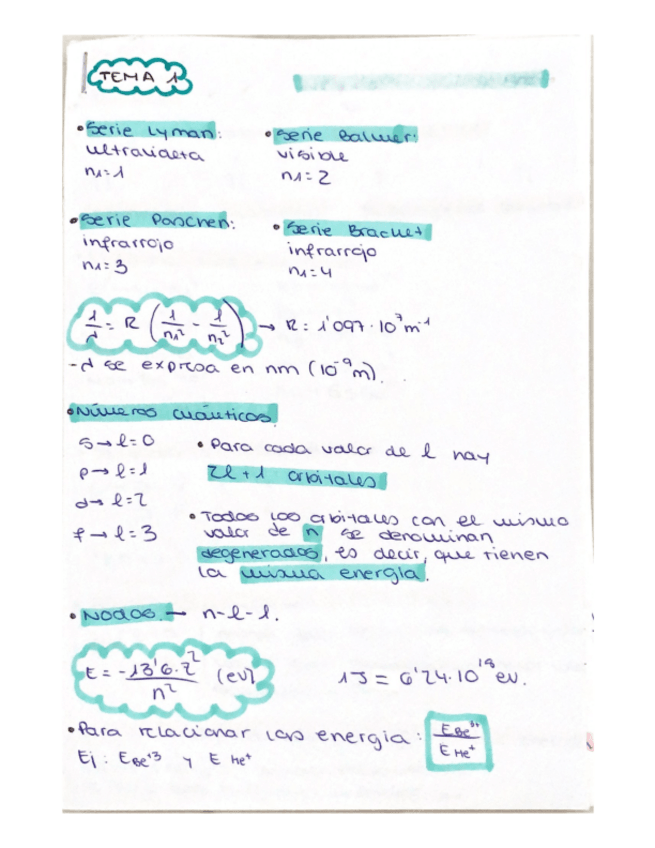 TEMA 1
• Serie Lyman:
ultravioleta
n₁=1
• Serie Balmer:
visible
n₁=2
• Serie Paschen:
infrarrojo
n₁=3
• Serie Bracket
infrarrojo
n₁=4
1/λ = R (1/n₁² - 1/n₂²) → R = 1'097·10⁷m⁻¹
- λ se expresa en nm (10⁻⁹m).
• Números cuánticos.
s → l=0
p → l=1
d → l=2
f → l=3
• Para cada valor de l hay
2l+1 orbitales
• Todos los orbitales con el mismo
valor de n se denominan
degenerados, es decir, que tienen
la misma energía.
• Nodos. → n-l-1.
E = -13'6·Z²/n² (eV)
1J = 6'24·10¹⁹ eV.
• Para relacionar las energía: E Be³⁺/E He⁺
Ej: E Be⁺³ y E He⁺